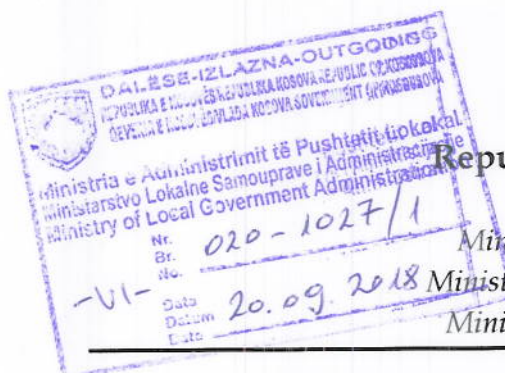 DALËSE-IZLAZNA-OUTGOING
REPUBLIKA E KOSOVËS REPUBLIKA KOSOVA REPUBLIC OF KOSOVO
Ministria e Administrimit të Pushtetit Lokal
Ministarstvo Lokalne Samouprave i Administracije
Ministry of Local Government Administration
Nr.
Br. 020-1027/1
No.
-VI-
Data
Datum 20.09.2018
Date
Repu
Min
Minist
Mini